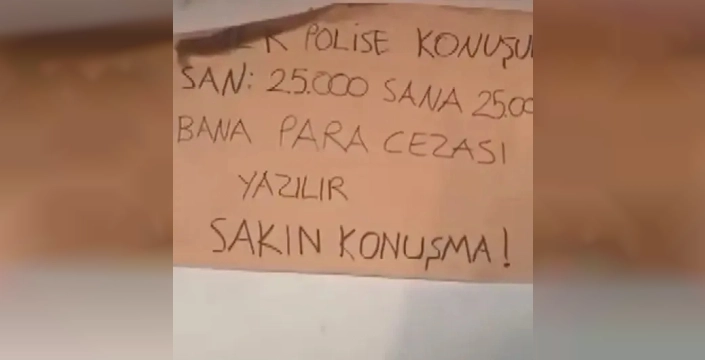 POLİSE KONUŞU
SAN: 25.000 SANA 25.00
BANA PARA CEZASI
YAZILIR
SAKIN KONUŞMA!